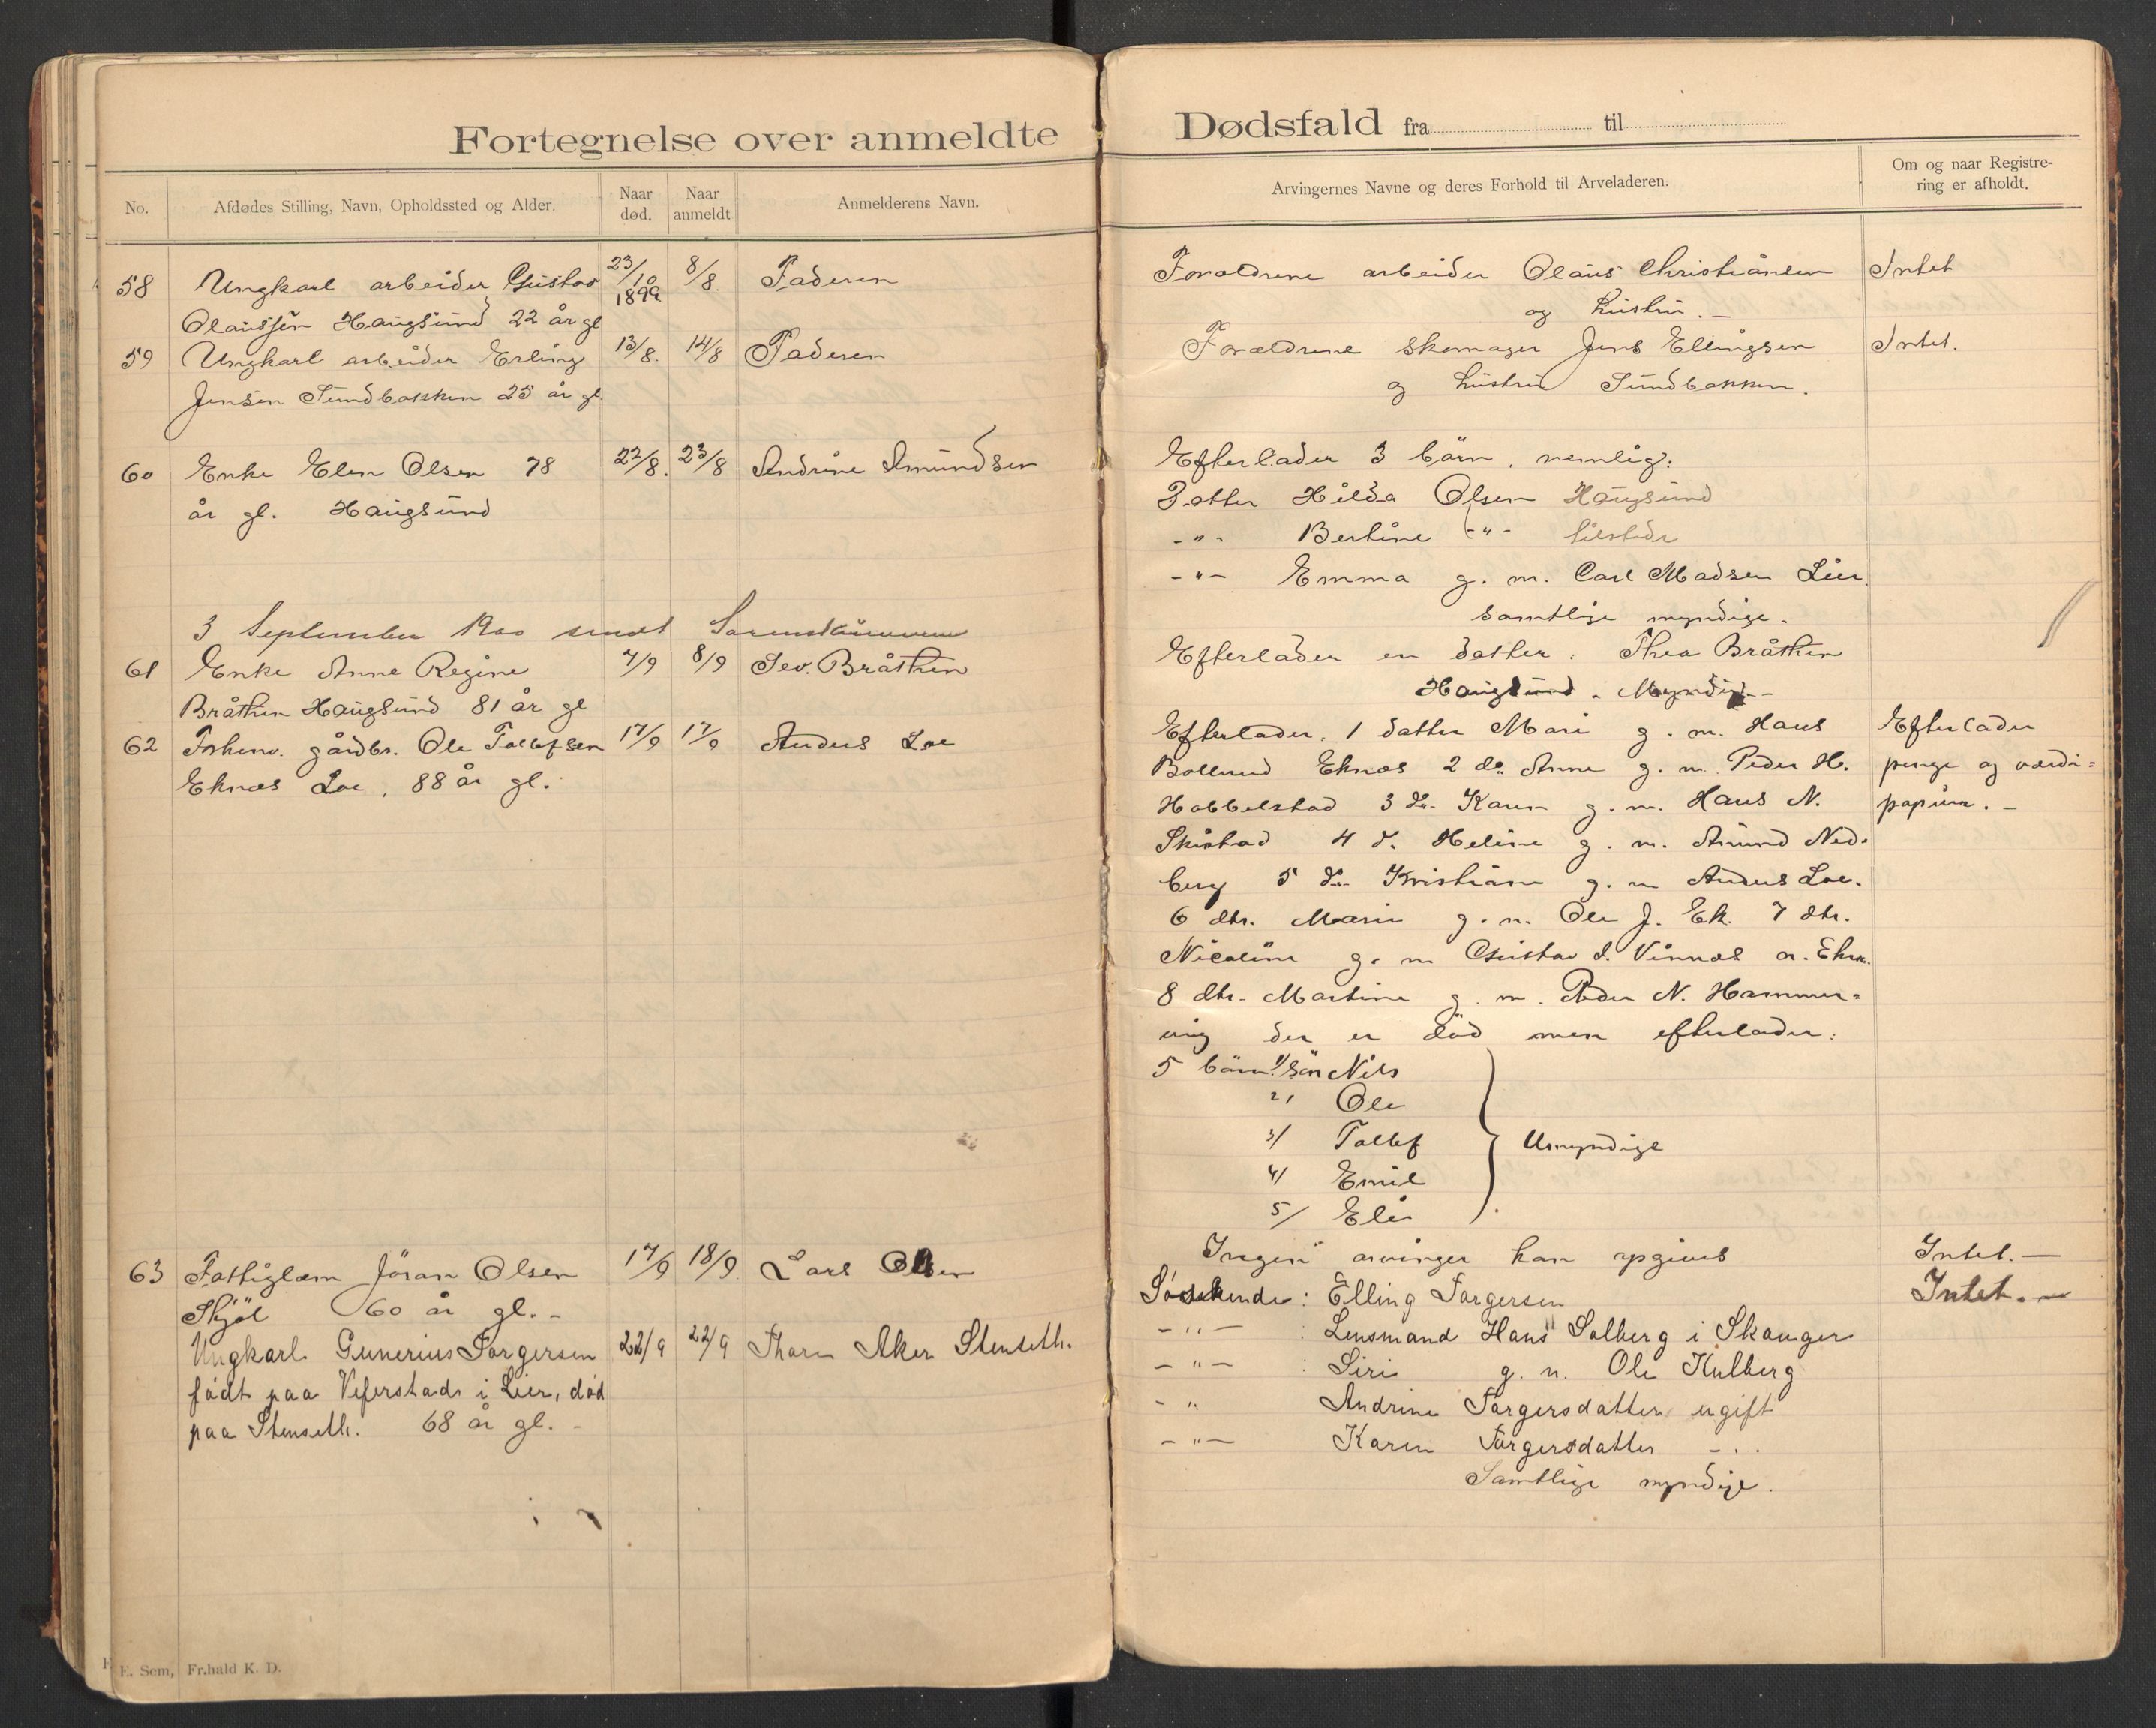 Fortegnelse over anmeldte
No.
Afdødes Stilling, Navn, Opholdssted og Alder.
Naar død.
Naar anmeldt
Anmelderens Navn.
58 Ungkarl arbeider Gustav 23/10 1899 8/8 Faderen
Olaussen Haugsund 22 år gl
59 Ungkarl arbeider Erling 13/8. 14/8 Faderen
Jensen Sundbakken 25 år gl.
60 Enke Elen Olsen 78 22/8. 23/8 Andrine Amundsen
år gl. Haugsund
3 September 1900 sendt
61 Enke Anne Regine 7/9 8/9 Sev. Bråthen
Bråthen Haugsund 81 år gl
62 Forhenv. gårdbr. Ole Tollefsen 17/9 17/9 Anders Loe
Eknes Loe, 88 år gl.
63 Fattiglem Jöran Olsen 17/9 18/9 Lars Olsen
Skjöl 60 år gl. -
Ungkarl Gunerius Torgersen 22/9 22/9 Thorn Aker Stenseth.
født paa Veferstad i Lier, død
paa Stenseth. 68 år gl. -
E. Sem, Fr.hald K. D.
Dødsfald fra til
Arvingernes Navne og deres Forhold til Arveladeren.
Om og naar Registre-
ring er afholdt.
Forældrene arbeider Olaus Christiansen Intet
og hustru. -
Forældrene skomager Jens Ellingsen Intet.
og hustru Sundbakken.
Efterlader 3 börn, nemlig:
Datter Hilda Olsen Haugsund
-"- Bertine -"- tilstede
-"- Emma g. m. Carl Madsen Lier.
samtlige myndige.
Efterlader en datter: Thea Bråthen
Haugsund. Myndig. -
Efterlader. 1 datter Mari g. m. Hans Efterlader
Bollerud Eknes 2 do Anne g. m. Peder H. penge og værdi=
Hobbelstad 3 do Karen g. m. Hans N. papirer. -
Skistad 4 d. Heline g. m. Amund Ned-
berg 5 do Kristiane g. m Anders Loe.
6 dtr. Marie g. m. Ole J. Ek. 7 dtr.
Nicoline g. m Gustav S. Vinnæs
8 dtr. Martine g. m. Peder N. Hammer=
der er död men efterlader:
5 börn: 1/ Sön Nils
2/ Ole
3/ Tollef Umyndige
4/ Emil
5/ Eli
Ingen arvinger kan opgives Intet. -
Søskende: Elling Torgersen Intet. -
-"- : Lensmand Hans Solberg i Skauger
-"- : Siri g. m. Ole Kulberg
-"- Andrine Torgersdatter ugift
-"- Karen Torgersdatter - " -
Samtlige myndige.